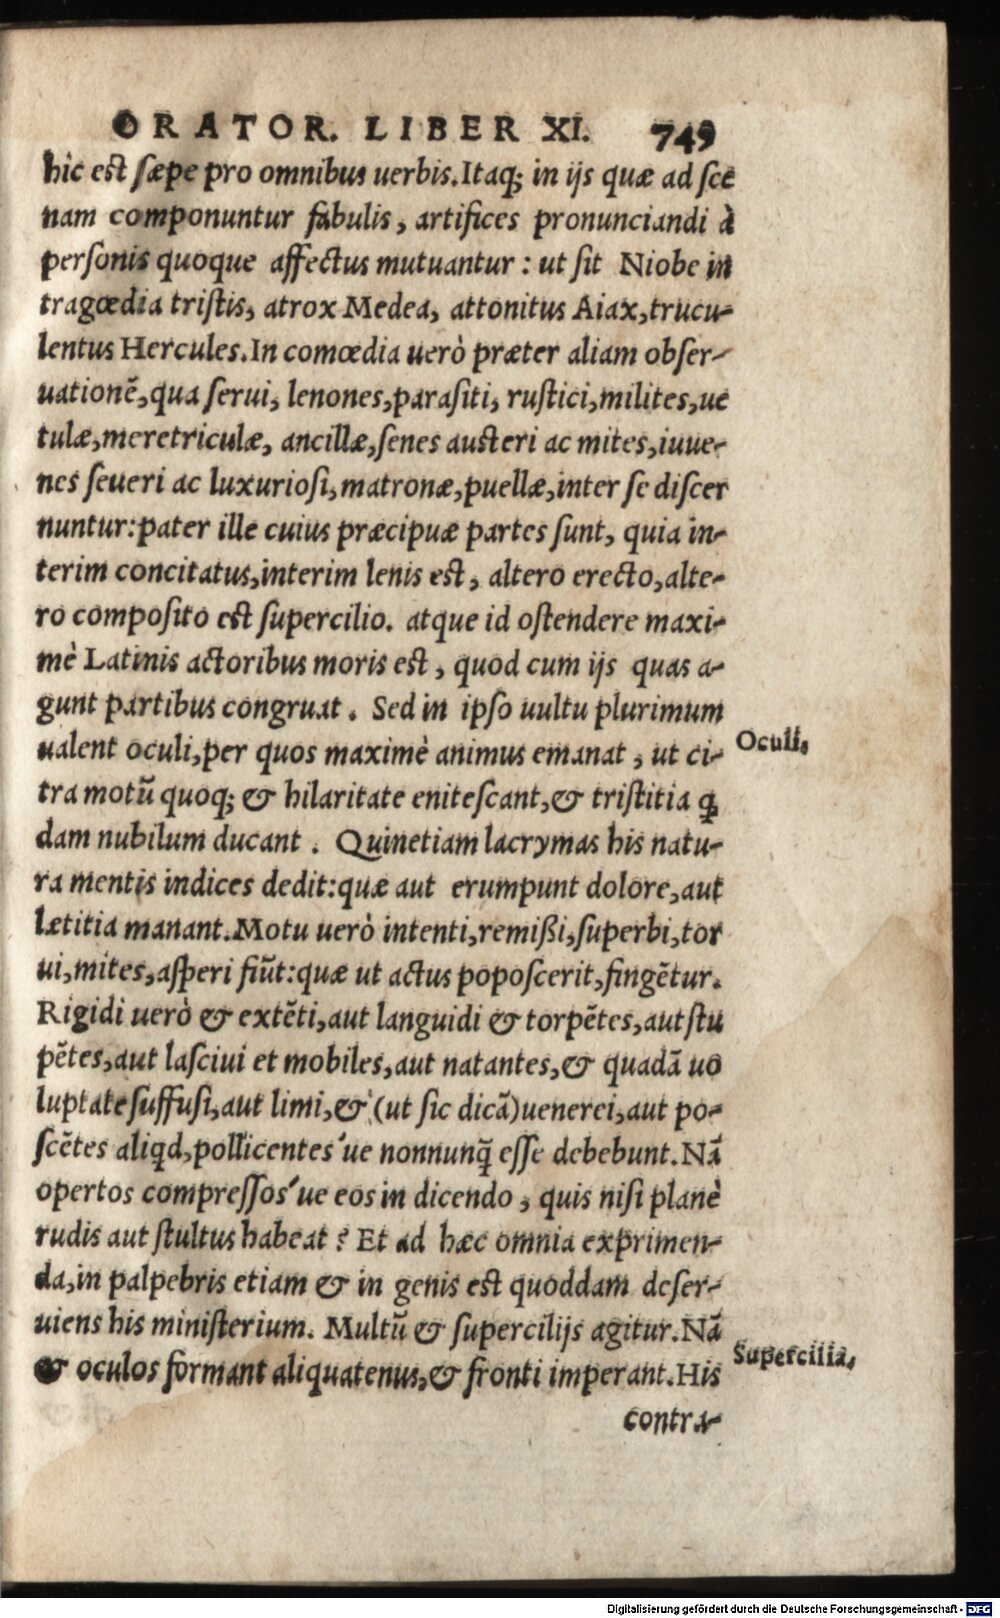 ORATOR. LIBER XI. 749
hic est sæpe pro omnibus uerbis. Itaq; in ijs quæ ad scē
nam componuntur fabulis, artifices pronunciandi à
personis quoque affectus mutuantur : ut sit Niobe in
tragœdia tristis, atrox Medea, attonitus Aiax, trucu-
lentus Hercules. In comœdia uerò præter aliam obser-
uationē, qua serui, lenones, parasiti, rustici, milites, ue
tulæ, meretriculæ, ancillæ, senes austeri ac mites, iuue-
nes seueri ac luxuriosi, matronæ, puellæ, inter se discer
nuntur: pater ille cuius præcipuæ partes sunt, quia in-
terim concitatus, interim lenis est, altero erecto, alte-
ro composito est supercilio. atque id ostendere maxi-
mè Latinis actoribus moris est, quod cum ijs quas a-
gunt partibus congruat. Sed in ipso uultu plurimum
ualent oculi, per quos maximè animus emanat, ut ci-
Oculi,
tra motū quoq; & hilaritate enitescant, & tristitia q̄
dam nubilum ducant. Quinetiam lacrymas his natu-
ra mentis indices dedit: quæ aut erumpunt dolore, aut
lætitia manant. Motu uerò intenti, remißi, superbi, tor
ui, mites, asperi fiūt: quæ ut actus poposcerit, fingētur.
Rigidi uerò & extēti, aut languidi & torpētes, aut stu
pētes, aut lasciui et mobiles, aut natantes, & quadā uo
luptate suffusi, aut limi, & (ut sic dicā) uenerei, aut po-
scētes aliqd, pollicentes'ue nonnunq̄ esse debebunt. Nā
opertos compressos'ue eos in dicendo, quis nisi planè
rudis aut stultus habeat? Et ad hæc omnia exprimen-
da, in palpebris etiam & in genis est quoddam deser-
uiens his ministerium. Multū & supercilijs agitur. Nā
Supercilia,
& oculos formant aliquatenus, & fronti imperant. His
contra-
Digitalisierung gefördert durch die Deutsche Forschungsgemeinschaft - DFG